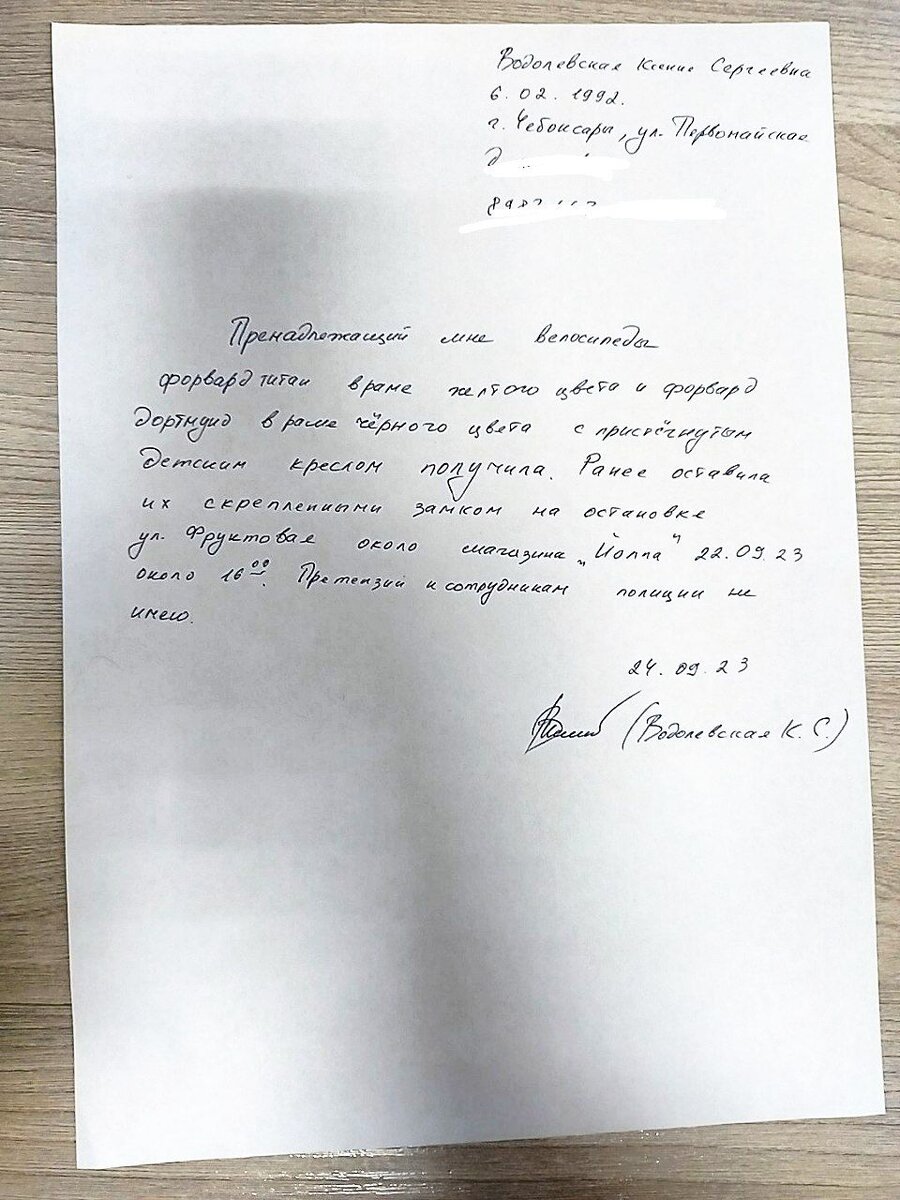 Водолевская Ксения Сергеевна
6. 02. 1992.
г. Чебоксары, ул. Первомайская
д
Пренадлежащий мне велосипеды
форвард титан в раме желтого цвета и форвард
дортмунд в раме чёрного цвета с пристёгнутым
детским креслом получила. Ранее оставила
их скрепленными замком на остановке
ул. Фруктовая около магазина „Йолпа" 22.09.23
около 16 00. Претензий к сотрудникам полиции не
имею.
24. 09. 23
(Водолевская К. С.)